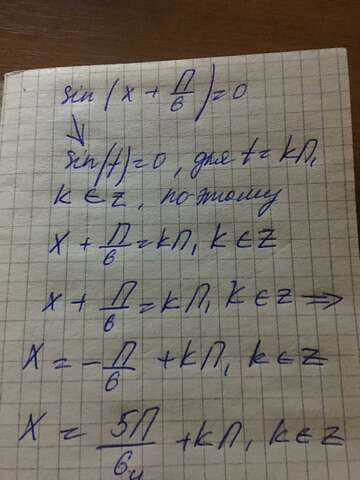 sin(x + П/6) = 0
sin(t) = 0, для t = kП,
k ∈ z, поэтому
x + П/6 = kП, k ∈ z
x + П/6 = kП, k ∈ z ⇒
x = -П/6 + kП, k ∈ z
x = 5П/6 + kП, k ∈ z